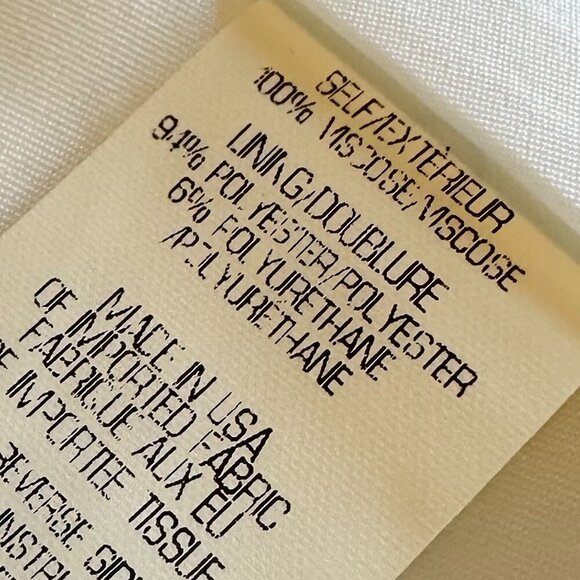 SELF/EXTÉRIEUR
100% VISCOSE/VISCOSE
LINING/DOUBLURE
94% POLYESTER/POLYESTER
6% POLYURETHANE
/POLYURÉTHANE
MADE IN USA
OF IMPORTED FABRIC
FABRIQUE AUX EU
IMPORTEE TISSUE
REVERSE